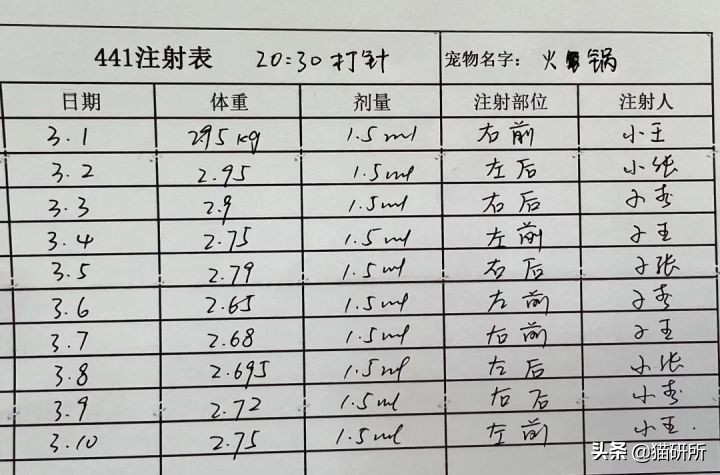 441注射表 20:30打针 宠物名字: 火锅
日期 体重 剂量 注射部位 注射人
3.1 2.95kg 1.5ml 右前 小王
3.2 2.95 1.5ml 左后 小张
3.3 2.9 1.5ml 右后 小李
3.4 2.75 1.5ml 左前 小王
3.5 2.79 1.5ml 右后 小张
3.6 2.65 1.5ml 左前 小李
3.7 2.68 1.5ml 右前 小王
3.8 2.695 1.5ml 左后 小张
3.9 2.72 1.5ml 右后 小李
3.10 2.75 1.5ml 左前 小王.
头条 @猫研所